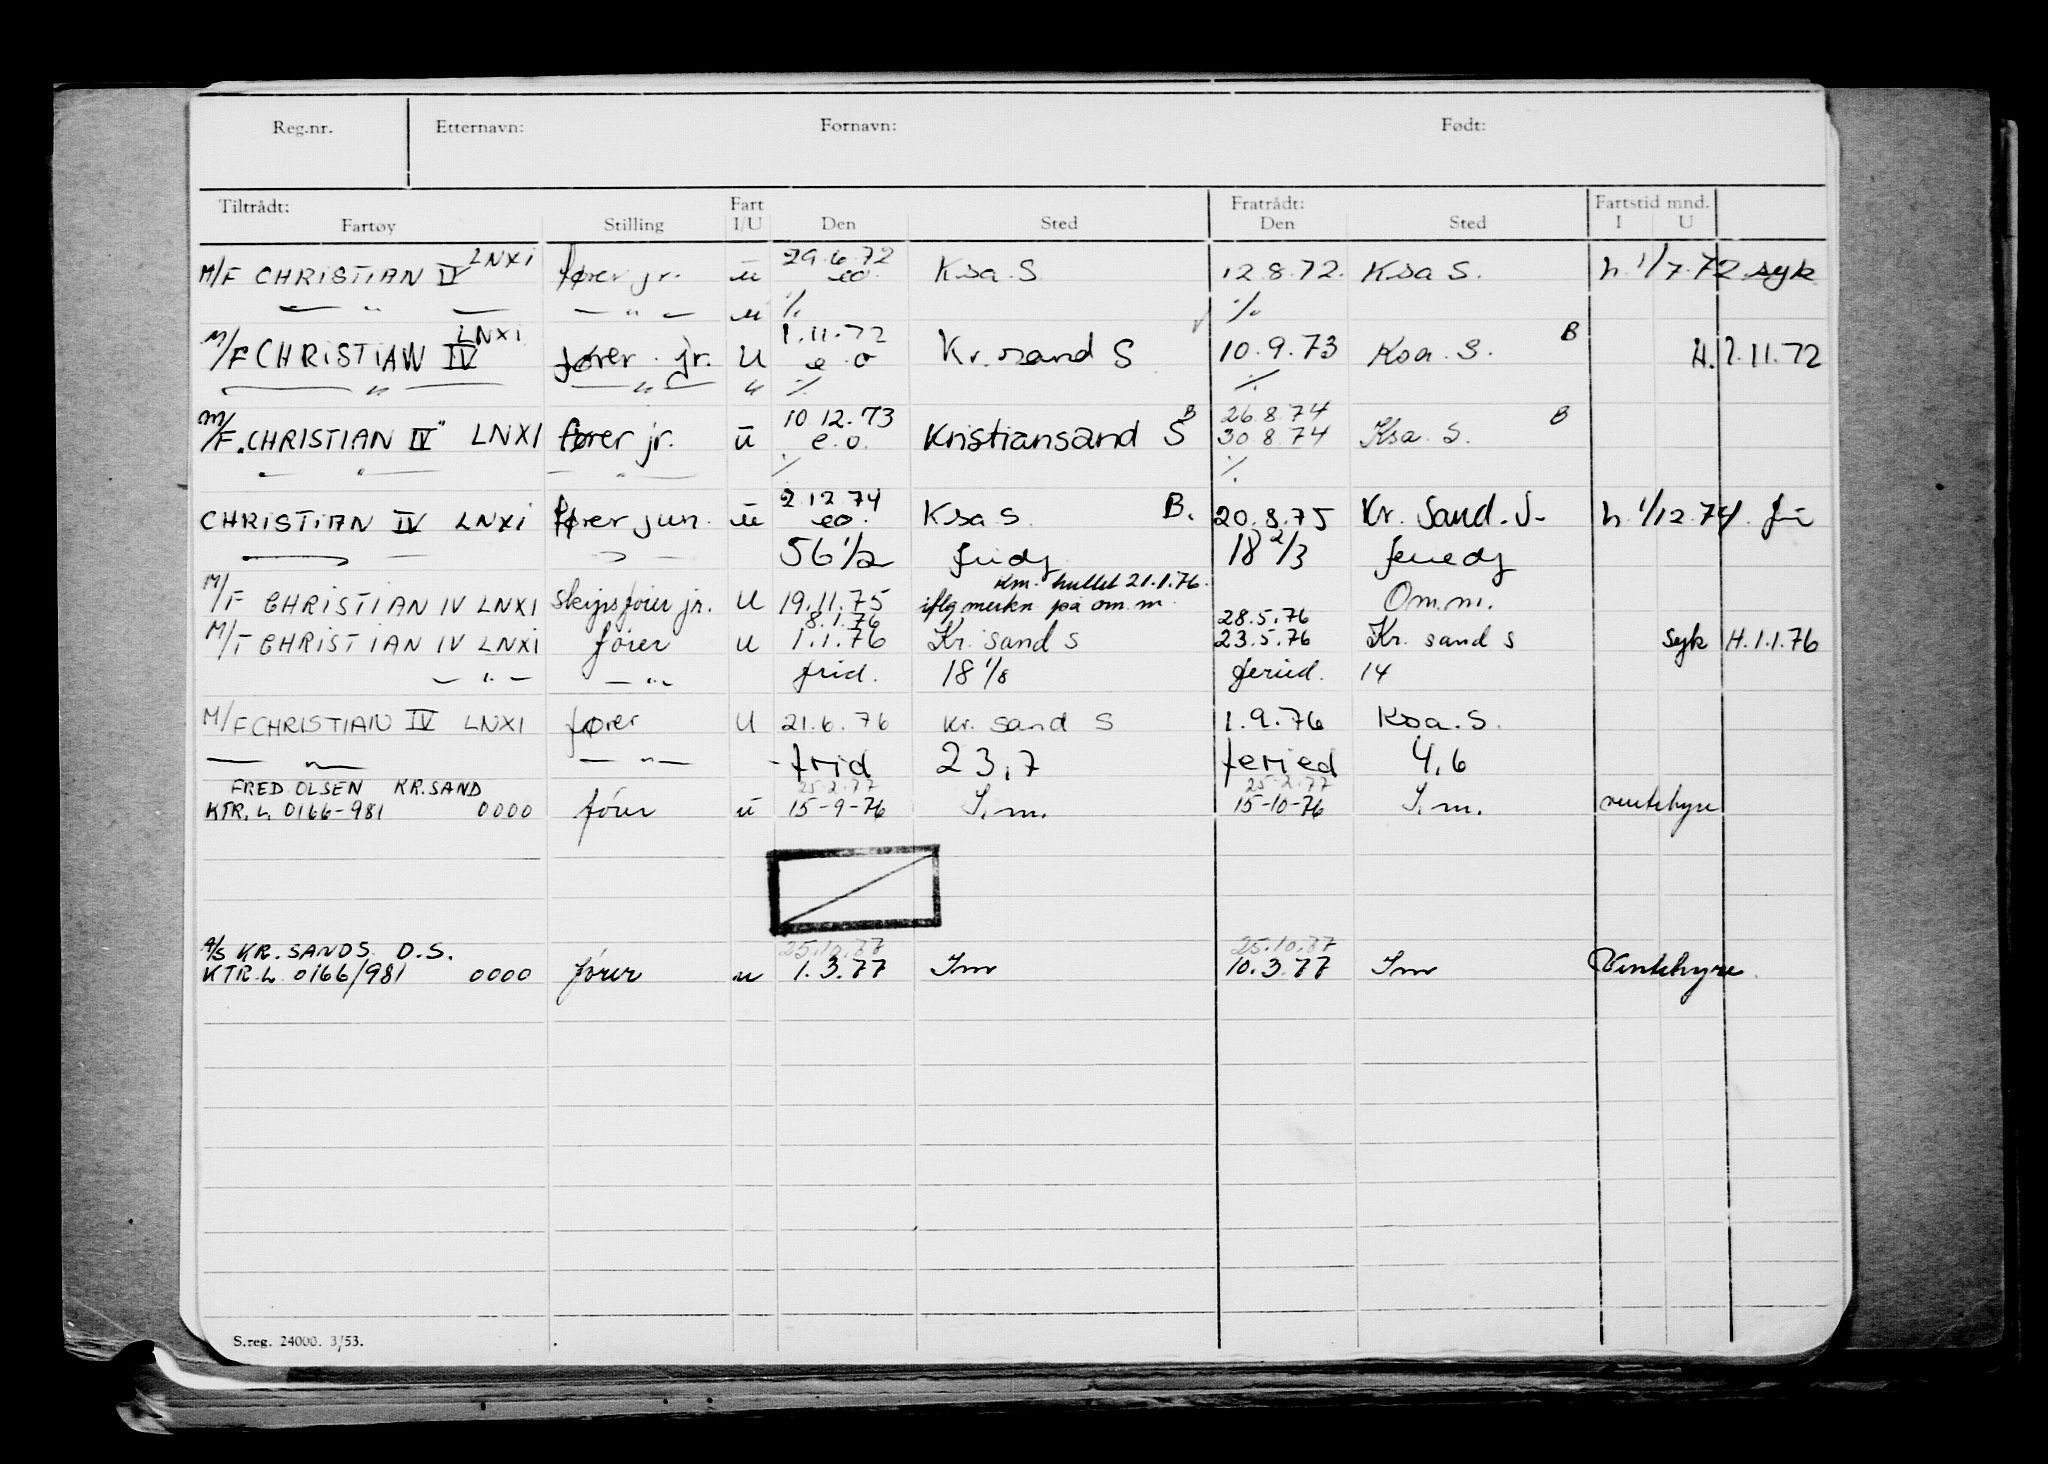 Reg.nr. Etternavn: Fornavn: Født:
Tiltrådt: Fart Fratrådt: Fartstid mnd.
Fartøy Stilling I/U Den Sted Den Sted I U
LNXI 29.6.72
M/F CHRISTIAN IV fører jr. u eo. Ksa S 12.8.72. Ksa S. h. 1/7.72 syk
— " — — " — u % %
LNXI 1.11.72 B
M/F CHRISTIAN IV fører jr. U e.o Kr.sand S 10.9.73 Ksa. S. H. 1.11.72
— " — — " — " % %
10.12.73 B 26.8.74 B
M/F. CHRISTIAN IV" LNXI fører jr. u e.o. Kristiansand S 30.8.74 Ksa. S.
— " — — " — % %
2.12.74
CHRISTIAN IV LNXI fører jun. u eo. Ksa S. B. 20.8.75 Kr. Sand. S- h. 1/12.74.
56 1/2 fridg 18 2/3 feriedg
km. hullet 21.1.76.
M/F CHRISTIAN IV LNXI Skipsfører jr. U 19.11.75 iflg merkn på om.m. Om.m.
8.1.76 28.5.76
M/F CHRISTIAN IV LNXI fører u 1.1.76 Kr. sand S 23.5.76 Kr. sand s syk H.1.1.76
— " — — " — frid. 18 1/8 feried. 14
M/F CHRISTIAN IV LNXI fører U 21.6.76 Kr. sand S 1.9.76 Ksa. S.
— " — — " — frid 23,7 feried 4,6
FRED. OLSEN KR.SAND 25-2.77 25-2.77
KTR. L. 0166-981 0000 fører u 15-9-76 S.m. 15-10-76 S.m. ventehyre
A/S KR.SANDS. D.S. 25.10.77 25.10.77
KTR.L 0166/981 0000 fører u 1.3.77 Sm 10.3.77 Sm Ventehyre
S.reg. 24000. 3/53.